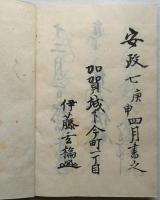 安政七庚申四月書之
加賀城下今町一丁目
伊藤玄